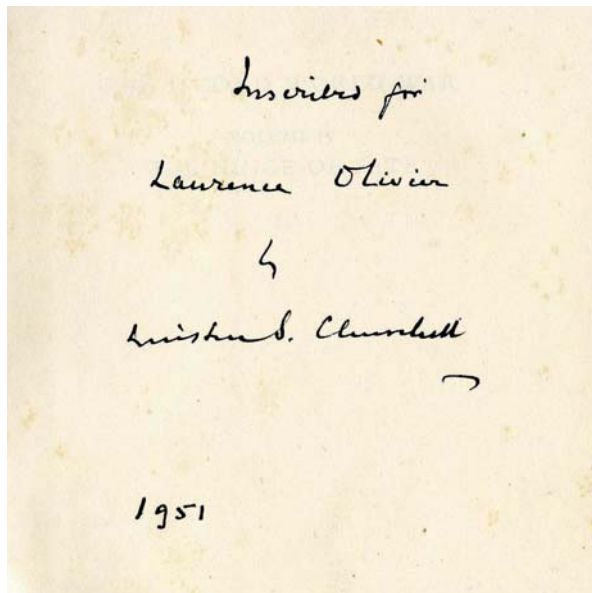 Inscribed for
Laurence Olivier
by
Winston S. Churchill
1951